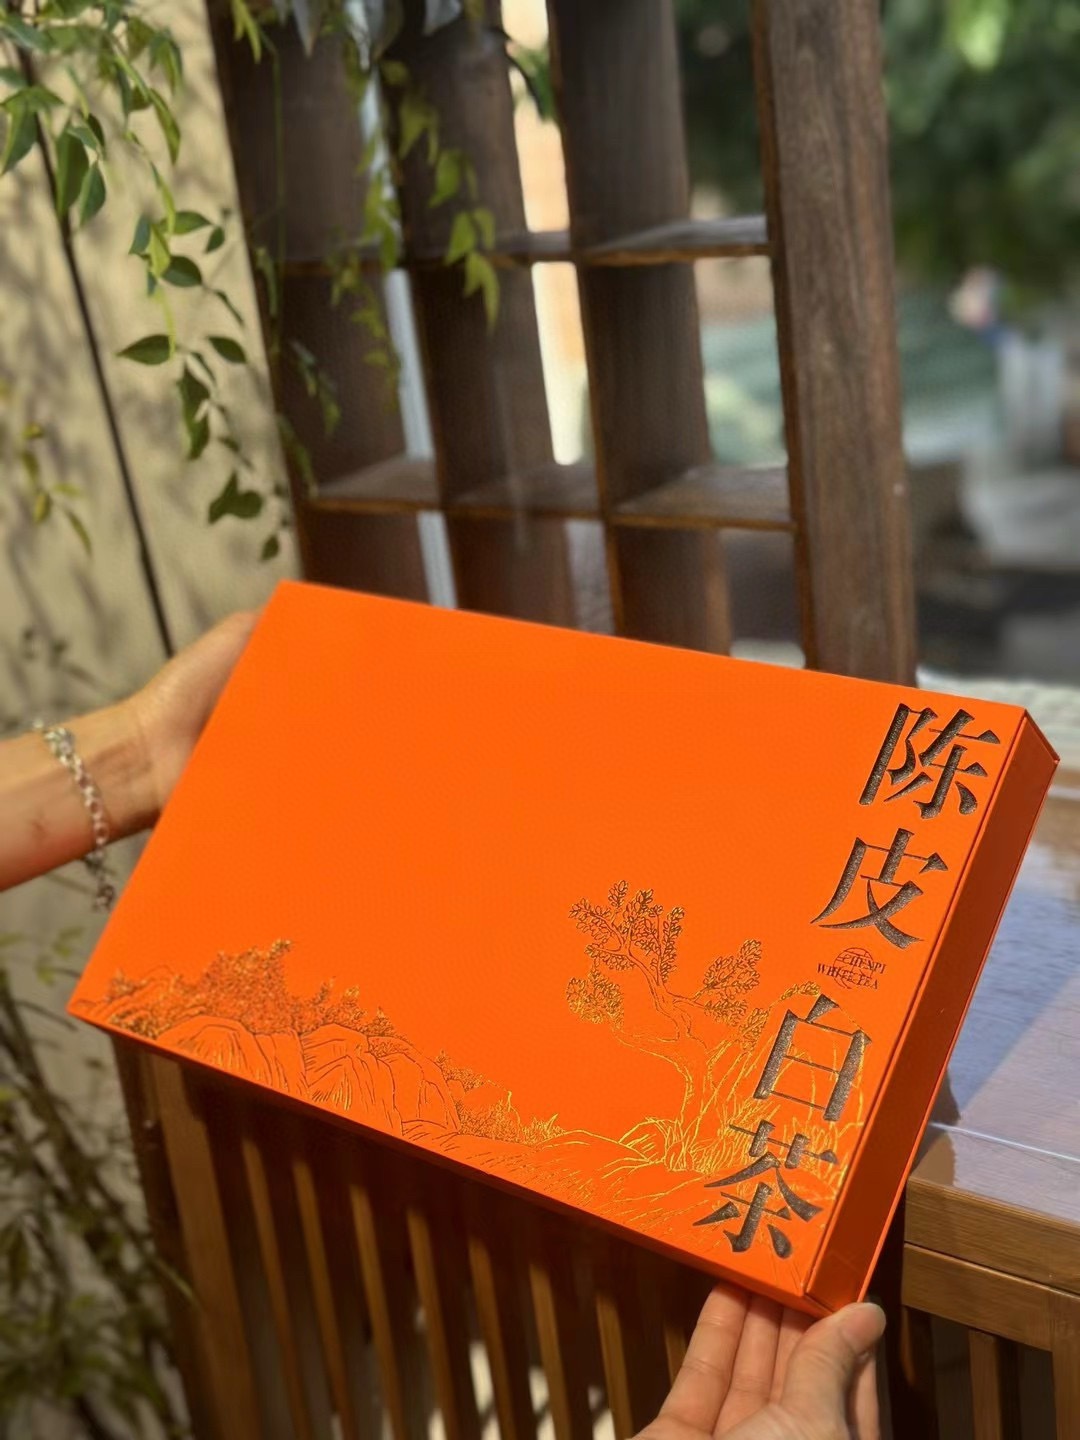 陈皮
CHENPI
WHITE TEA
白茶